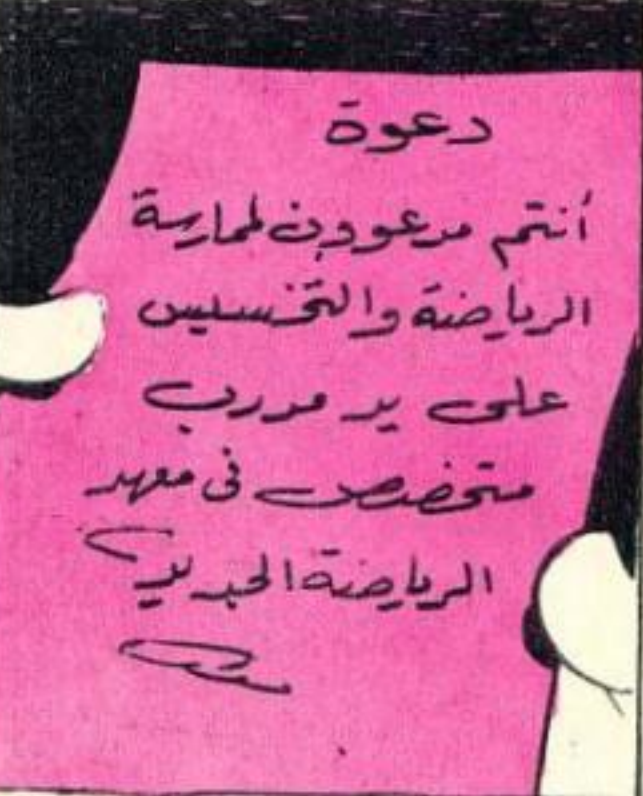 دعوة
أنتم مدعوون لممارسة
الرياضة والتخسيس
على يد مدرب
متخصص فى معهد
الرياضة الجديد